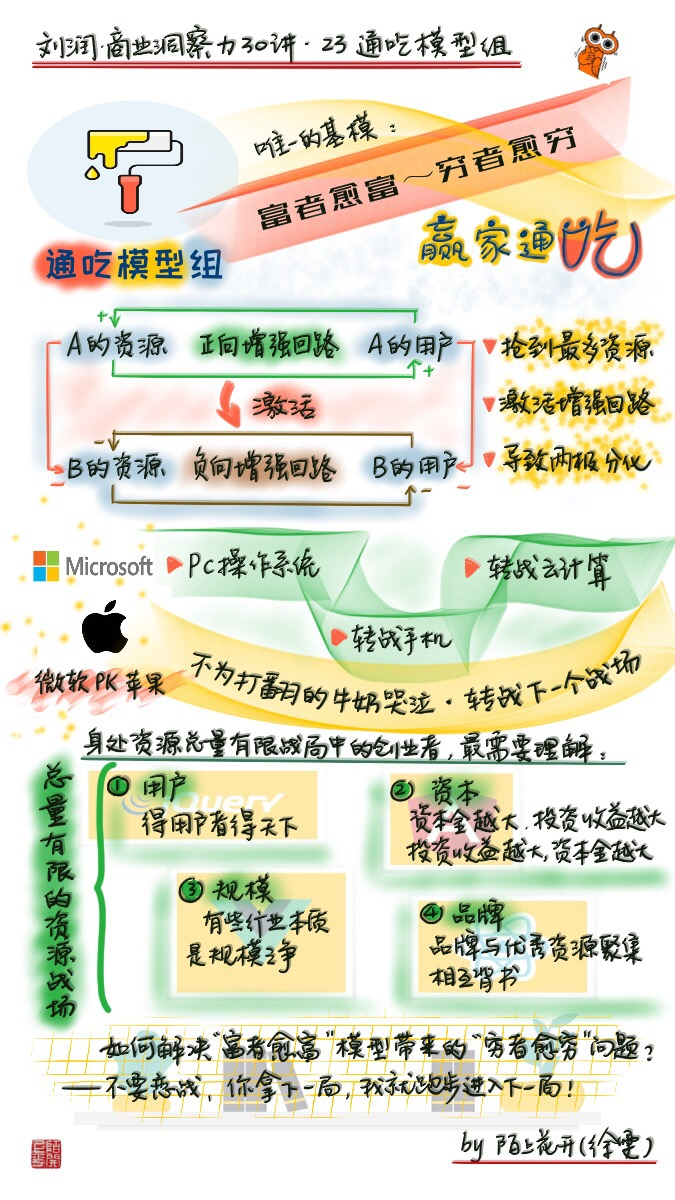 刘润·商业洞察力30讲·23 通吃模型组
唯一的基模：
富者愈富～穷者愈穷
通吃模型组
赢家通吃
+
A的资源 正向增强回路 A的用户
+
▼抢到最多资源
激活
▼激活增强回路
-
B的资源 负向增强回路 B的用户
- - -
▼导致两极分化
Microsoft ▶Pc操作系统
▶转战云计算
▶转战手机
微软PK苹果
不为打翻的牛奶哭泣·转战下一个战场
身处资源总量有限战局中的创业者，最需要理解：
总量有限的资源战场
① 用户
得用户者得天下
② 资本
资本金越大，投资收益越大
投资收益越大，资本金越大
③ 规模
有些行业本质
是规模之争
④ 品牌
品牌与优秀资源聚集
相互背书
如何解决“富者愈富”模型带来的“穷者愈穷”问题？
——不要恋战，你拿下一局，我就跑步进入下一局！
by 陌上花开（徐雯）